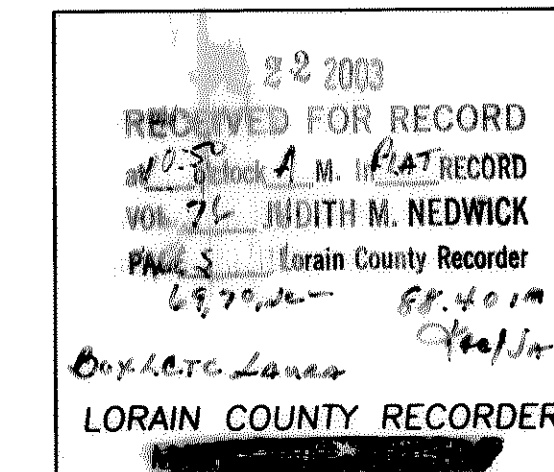 22 2003
RECEIVED FOR RECORD
at 10:50 o'clock A M. In PLAT RECORD
VOL. 76 JUDITH M. NEDWICK
PAGE 5 Lorain County Recorder
88.40
Box L.C.T.C.
LORAIN COUNTY RECORDER